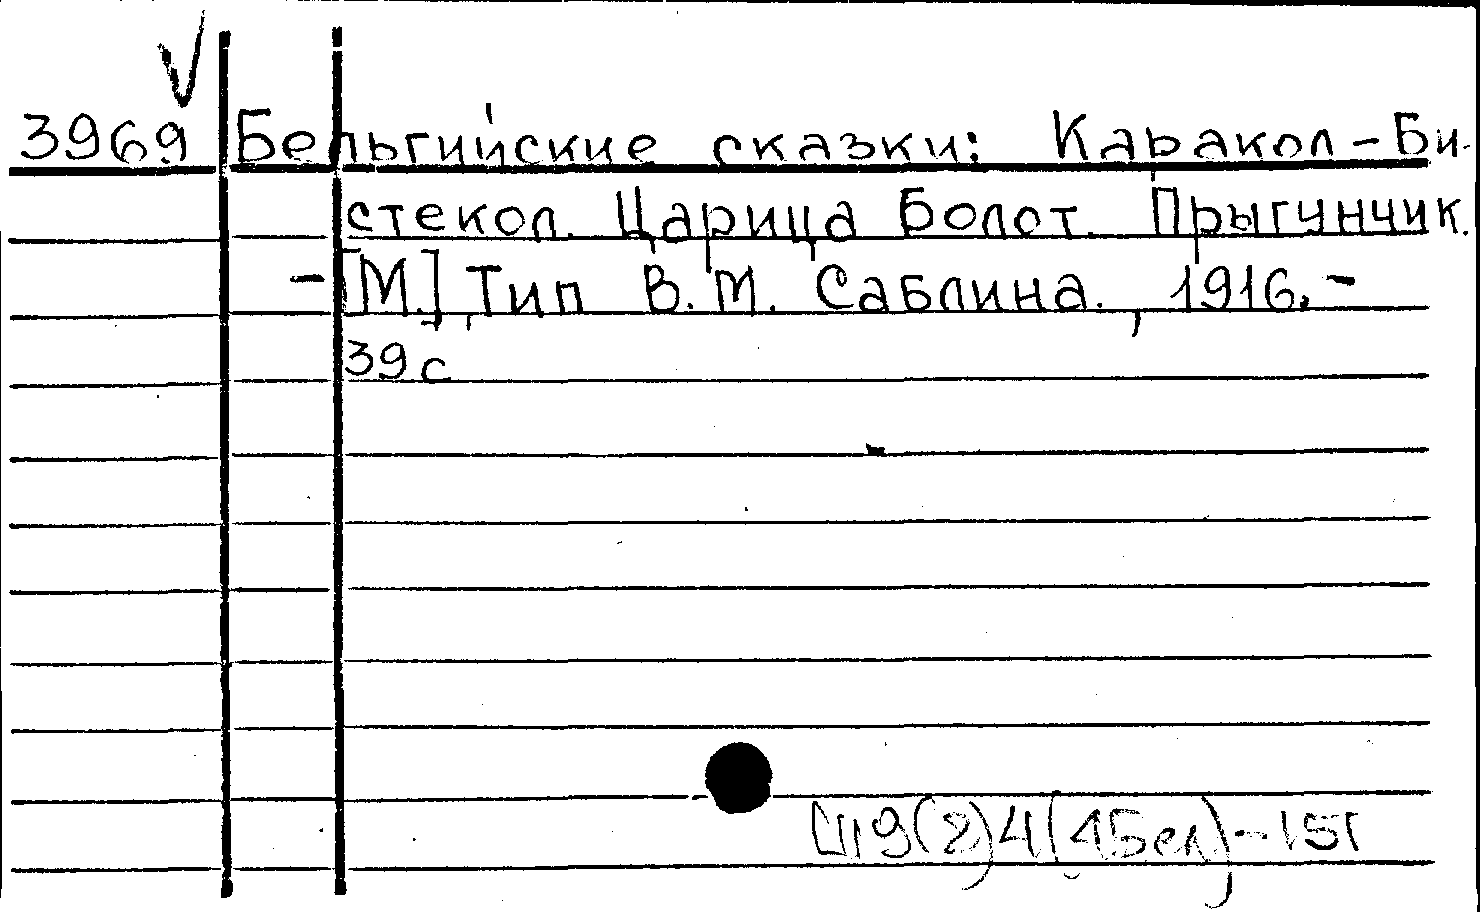 3969 Бельгийские сказки: Каракол-Би-
стекол. Царица Болот. Прыгунчик.
-[М.], Тип В.М. Саблина., 1916.-
39 с
Ш9(2)4(4Бел)-151